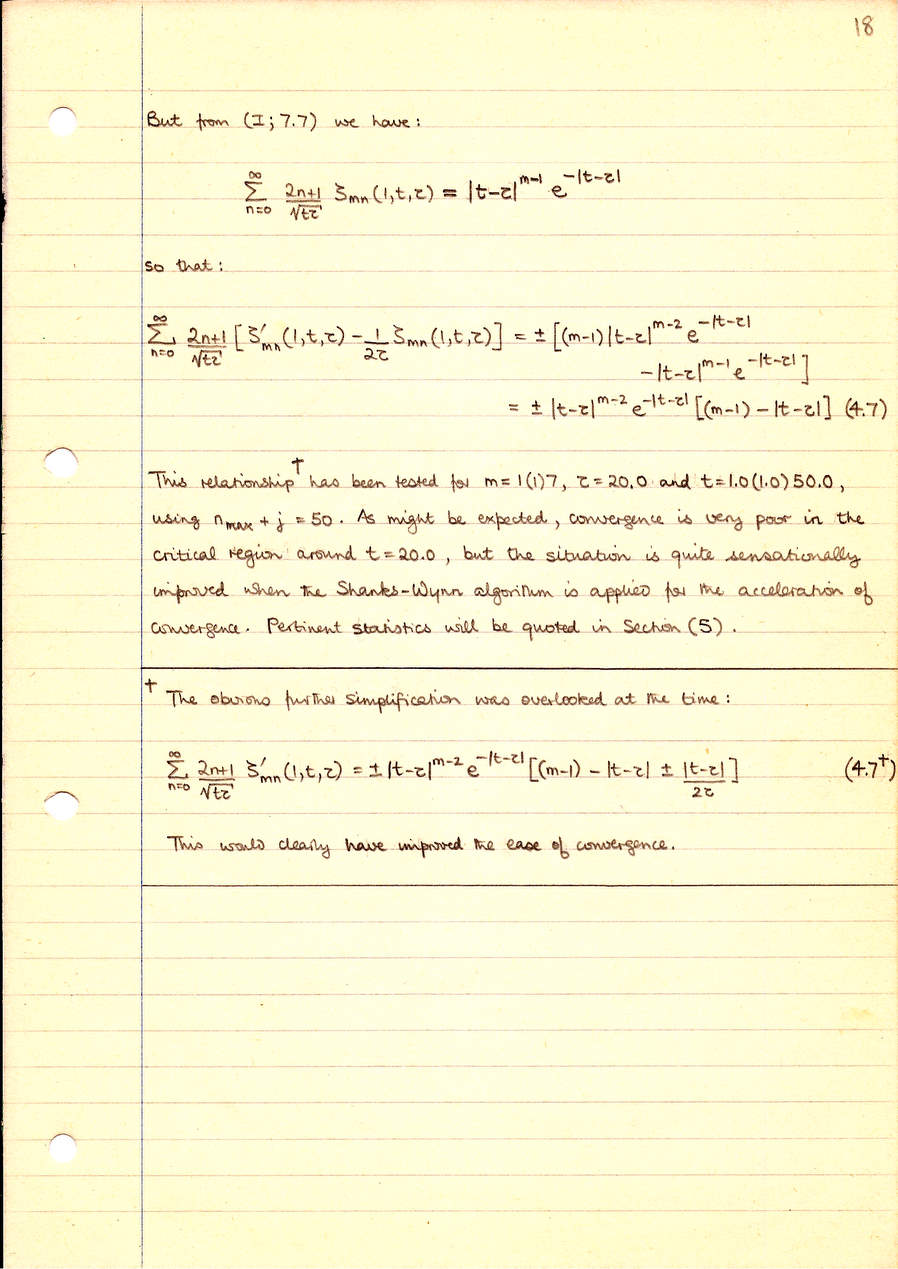 18
But from (I; 7.7) we have:
∑_{n=0}^{∞} (2n+1)/√(tτ) ζ_{mn}(1,t,τ) = |t-τ|^{m-1} e^{-|t-τ|}
so that:
∑_{n=0}^{∞} (2n+1)/√(tτ) [ζ'_{mn}(1,t,τ) - 1/(2τ) ζ_{mn}(1,t,τ)] = ± [(m-1)|t-τ|^{m-2} e^{-|t-τ|}
- |t-τ|^{m-1} e^{-|t-τ|}]
= ± |t-τ|^{m-2} e^{-|t-τ|} [(m-1) - |t-τ|] (4.7)
This relationship† has been tested for m = 1(1)7, τ = 20.0 and t = 1.0(1.0)50.0,
using n_{max} + j = 50. As might be expected, convergence is very poor in the
critical region around t = 20.0, but the situation is quite sensationally
improved when the Shanks-Wynn algorithm is applied for the acceleration of
convergence. Pertinent statistics will be quoted in Section (5).
† The obvious further simplification was overlooked at the time:
∑_{n=0}^{∞} (2n+1)/√(tτ) ζ'_{mn}(1,t,τ) = ± |t-τ|^{m-2} e^{-|t-τ|} [(m-1) - |t-τ| ± |t-τ|/(2τ)] (4.7†)
This would clearly have improved the ease of convergence.